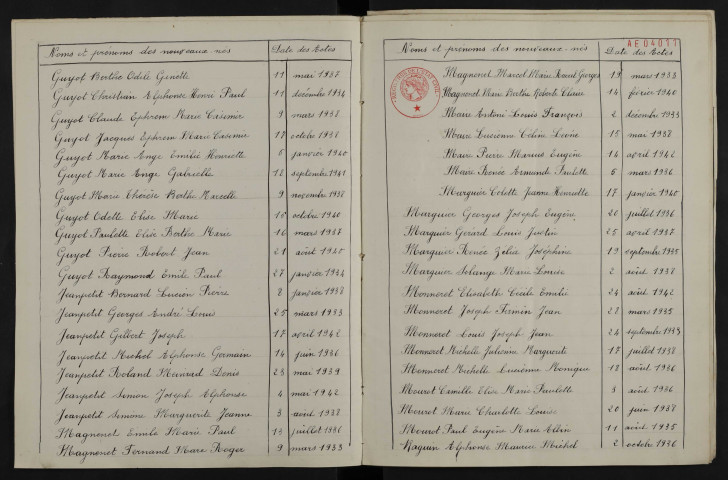 Noms et prénoms des nouveaux-nés Date des Actes
Guyot Berthe Odile Ginette 11 mai 1937
Guyot Christian Alphonse Henri Paul 11 décembre 1934
Guyot Claude Ephrem Marie Casimir 9 mars 1937
Guyot Jacques Ephrem Marie Casimir 17 octobre 1938
Guyot Marie Ange Emilie Henriette 6 janvier 1940
Guyot Marie Ange Gabrielle 12 septembre 1941
Guyot Marie Thérèse Berthe Marcelle 9 novembre 1938
Guyot Odette Elise Marie octobre 1940
Guyot Paulette Elise Berthe Marie 16 mars 1937
Guyot Pierre Robert Jean 21 août 1940
Guyot Raymond Emile Paul 27 janvier 1934
Jeanpetit Bernard Lucien Pierre 2 janvier 1938
Jeanpetit Georges André Louis 25 mars 1933
Jeanpetit Gilbert Joseph 17 avril 1942
Jeanpetit Michel Alphonse Germain 14 juin 1936
Jeanpetit Roland Meinrad Denis 23 mai 1939
Jeanpetit Simon Joseph Alphonse 4 mai 1942
Jeanpetit Simone Marguerite Jeanne 3 août 1938
Magnenet Emile Marie Paul 13 juillet 1936
Magnenet Fernand Marie Roger 9 mars 1933
Noms et prénoms des nouveaux-nés Date des Actes
AE04077
Magnenet Marcel Marie Georges 19 mars 1933
Magnenet Marie Berthe Roberte Claire 14 février 1940
Maire Antoine Louis François 2 décembre 1933
Maire Lucienne Céline Louise 15 mai 1938
Maire Pierre Marius Eugène 14 avril 1942
Maire Renée Armande Paulette 6 mars 1936
Marguier Colette Jeanne Henriette 17 janvier 1940
Marguier Georges Joseph Eugène 20 juillet 1936
Marguier Gérard Louis Justin 25 avril 1937
Marguier Renée Zélia Joséphine 19 septembre 1935
Marguier Solange Marie Louise 2 août 1938
Monneret Elisabeth Cécile Emilie 24 août 1942
Monneret Joseph Firmin Jean 22 mars 1935
Monneret Louis Joseph Jean 24 septembre 1933
Monneret Michelle Julienne Marguerite 17 juillet 1938
Monneret Michelle Lucienne Monique 18 août 1936
Mouret Camille Elise Marie Paulette 3 août 1936
Mouret Marie Charlotte Louise 20 juin 1938
Mouret Paul Eugène Marie Albin 11 août 1935
Raguin Alphonse Maurice Michel 2 octobre 1936